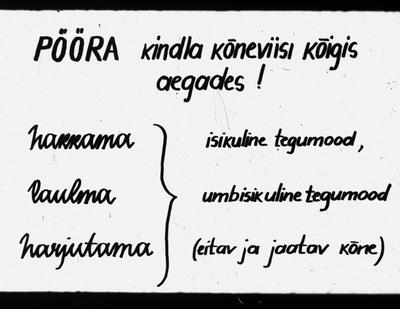 PÖÖRA kindla kõneviisi kõigis
aegades!
hakkama
isikuline tegumood,
laulma
umbisikuline tegumood
harjutama
(eitav ja jaatav kõne)